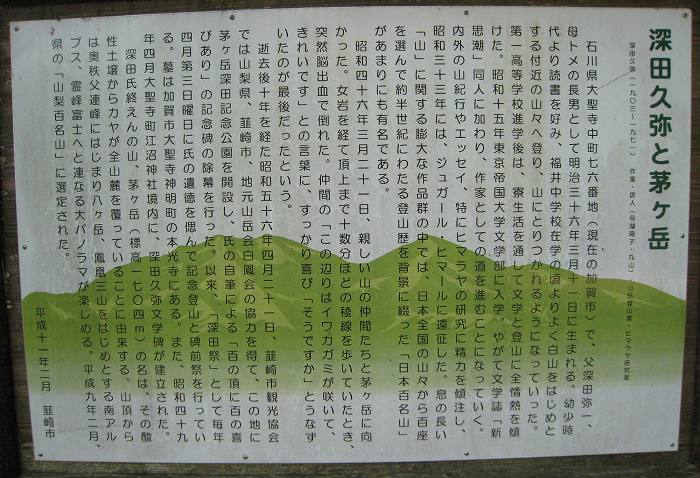 深田久弥と茅ヶ岳
深田久弥(一九〇三〜一九七一) 作家・俳人(号湖南子・九山) 山岳登山家・ヒマラヤ研究家
石川県大聖寺中町七六番地(現在の加賀市)で、父深田弥一、
母トメの長男として明治三十六年三月十一日に生まれる。幼少時
代より読書を好み、福井中学校在学の頃よりよく白山をはじめと
する付近の山々へ登り、山にとりつかれるようになっていった。
第一高等学校進学後は、寮生活を通して文学と登山に全情熱を傾
けた。昭和十五年東京帝国大学文学部に入学。やがて文学誌「新
思潮」同人に加わり、作家としての道を進むことになっていく。
内外の山紀行やエッセイ、特にヒマラヤの研究に精力を傾注し、
昭和三十三年には、ジュガール・ヒマールに遠征した。息の長い
「山」に関する膨大な作品群の中では、日本全国の山々から百座
を選んで約半世紀にわたる登山歴を背景に綴った「日本百名山」
があまりにも有名である。
昭和四十六年三月二十一日、親しい山の仲間たちと茅ヶ岳に向
かった。女岩を経て頂上まで十数分ほどの稜線を歩いていたとき、
突然脳出血で倒れた。仲間の「この辺りはイワカガミが咲いて、
きれいです」との言葉に、すっかり喜び「そうですか」とうなず
いたのが最後だったという。
逝去後十年を経た昭和五十六年四月二十一日、韮崎市観光協会
では山梨県、韮崎市、地元山岳会白鳳会の協力を得て、この地に
茅ヶ岳深田記念公園を開設し、氏の自筆による「百の頂に百の喜
びあり」の記念碑の除幕を行った。以来、「深田祭」として毎年
四月第三日曜日に氏の遺徳を偲んで記念登山と碑前祭を行ってい
る。墓は加賀市大聖寺神明町の本光寺にある。また、昭和四十九
年四月大聖寺町江沼神社境内に、深田久弥文学碑が建立された。
深田氏終えんの山、茅ヶ岳(標高一七〇四m)の名は、その酸
性土壌からカヤが全山麓を覆っていることに由来する。山頂から
は奥秩父連峰にはじまり八ヶ岳、鳳凰三山をはじめとする南アル
プス、霊峰富士へと連なる大パノラマが楽しめる。平成九年二月、
県の「山梨百名山」に選定された。
平成十一年二月 韮崎市